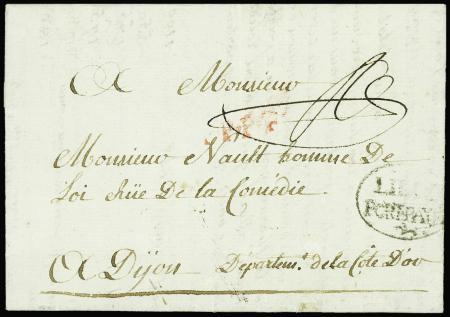 A Monsieur
Monsieur Nault homme De
Loi Rüe De la Comédie.
A Dijon Départem.t de la Côte D'or